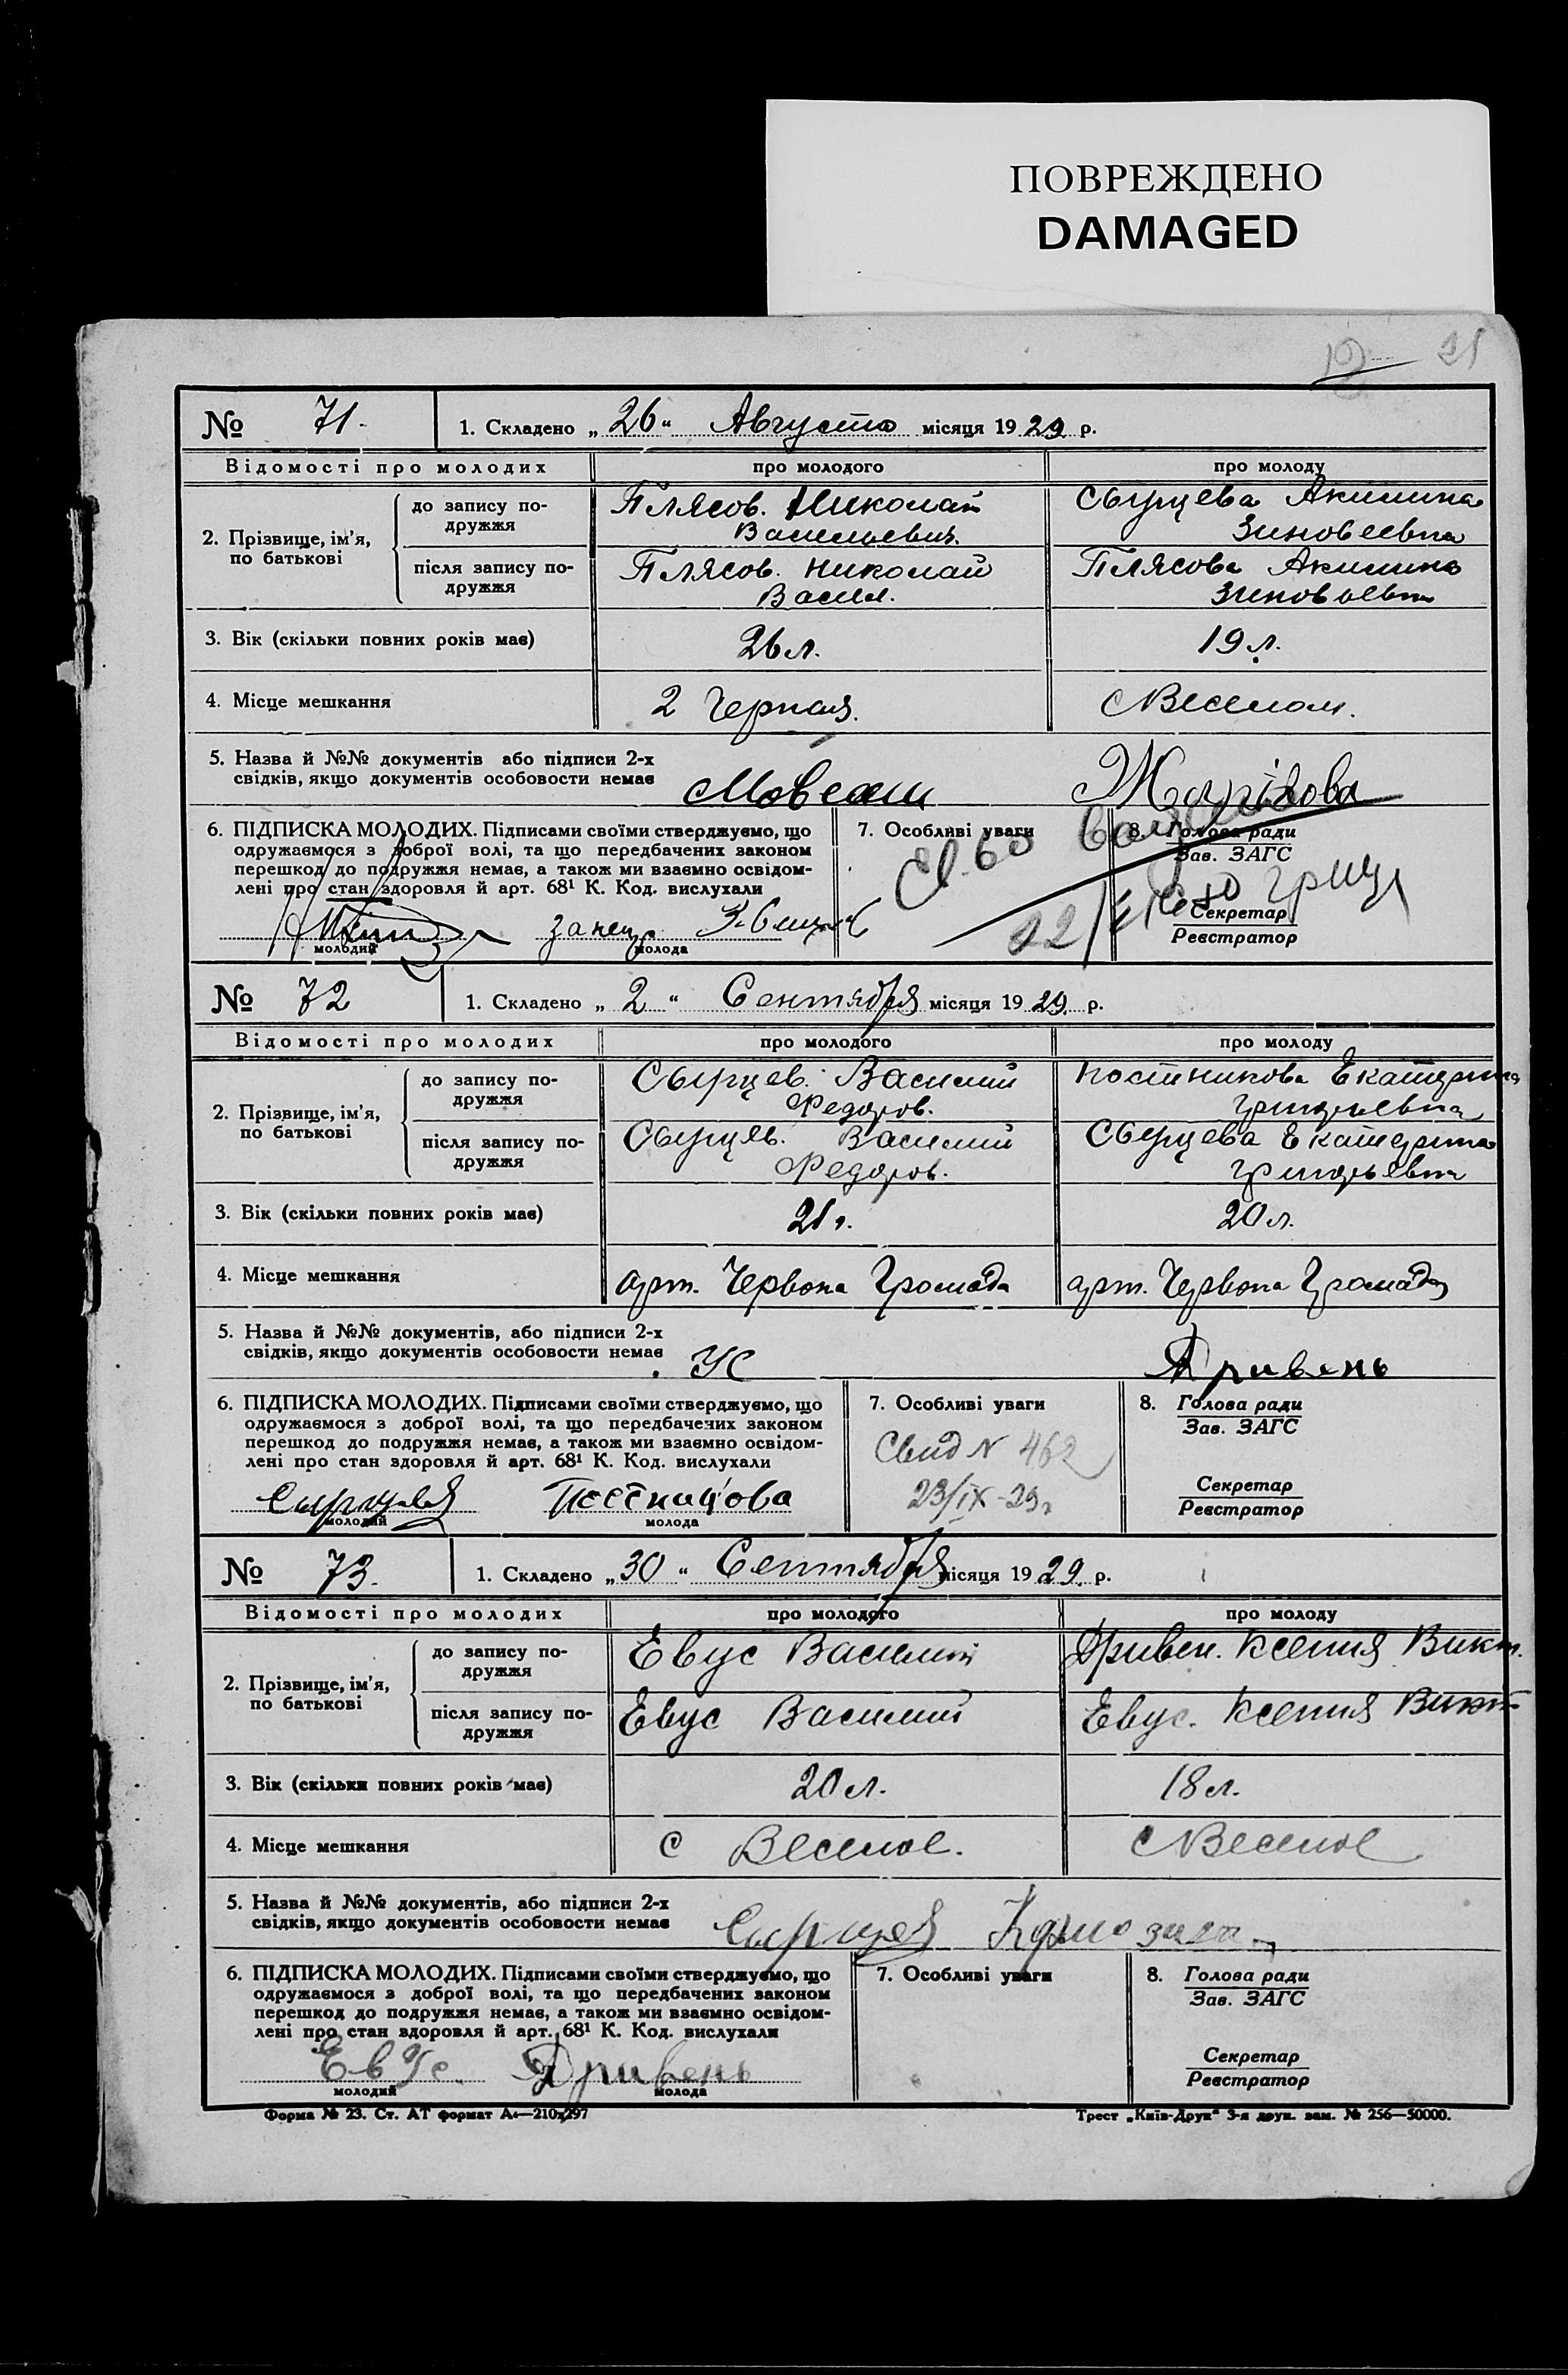 ПОВРЕЖДЕНО
DAMAGED
21
№ 71. 1. Складено „26“ Августа місяця 1929 р.
Відомості про молодих про молодого про молоду
2. Прізвище, ім’я, по батькові
до запису по-дружжя
Плясов. Николай
Васильевич.
Сырцева Акилина
Зиновеевна
після запису по-дружжя
Плясов. Николай
Васил.
Плясова Акилина
Зиновьевна
3. Вік (скільки повних років має) 26 л. 19 л.
4. Місце мешкання 2 Черная. с Веселом.
5. Назва й №№ документів або підписи 2-х
свідків, якщо документів особовости немає
6. ПІДПИСКА МОЛОДИХ. Підписами своїми стверджуємо, що
одружаємося з доброї волі, та що передбачених законом
перешкод до подружжя немає, а також ми взаємно освідом-
лені про стан здоровля й арт. 68¹ К. Код. вислухали
молодий молода
7. Особливі уваги
8. Голова ради
Зав. ЗАГС
Секретар
Реєстратор
№ 72 1. Складено „2“ Сентября місяця 1929 р.
Відомості про молодих про молодого про молоду
2. Прізвище, ім’я, по батькові
до запису по-дружжя
Сырцев. Василий
Федоров.
Постникова Екатерина
Григорьевна
після запису по-дружжя
Сырцев. Василий
Федоров.
Сырцева Екатерина
Григорьевна
3. Вік (скільки повних років має) 21 г. 20 л.
4. Місце мешкання арт. Червона Громада арт. Червона Громада
5. Назва й №№ документів, або підписи 2-х
свідків, якщо документів особовости немає
Ус Дривень
6. ПІДПИСКА МОЛОДИХ. Підписами своїми стверджуємо, що
одружаємося з доброї волі, та що передбачених законом
перешкод до подружжя немає, а також ми взаємно освідом-
лені про стан здоровля й арт. 68¹ К. Код. вислухали
Сырцев
молодий молода
7. Особливі уваги
Свид N 462
23/IX-29г
8. Голова ради
Зав. ЗАГС
Секретар
Реєстратор
№ 73. 1. Складено „30“ Сентября місяця 1929. р.
Відомості про молодих про молодого про молоду
2. Прізвище, ім’я, по батькові
до запису по-дружжя
Евус Василий
Дривен. Ксения Викт.
після запису по-дружжя
Евус Василий
Евус. Ксения Викт
3. Вік (скільки повних років має) 20 л. 18 л.
4. Місце мешкання с Веселое. с Веселое
5. Назва й №№ документів, або підписи 2-х
свідків, якщо документів особовости немає
Сырцев
6. ПІДПИСКА МОЛОДИХ. Підписами своїми стверджуємо, що
одружаємося з доброї волі, та що передбачених законом
перешкод до подружжя немає, а також ми взаємно освідом-
лені про стан здоровля й арт. 68¹ К. Код. вислухали
Евус. Дривень
молодий молода
7. Особливі уваги
8. Голова ради
Зав. ЗАГС
Секретар
Реєстратор
Форма № 23. Ст. АТ формат А4—210×297
Трест „Київ-Друк“ 3-я друк. зам. № 256—50000.